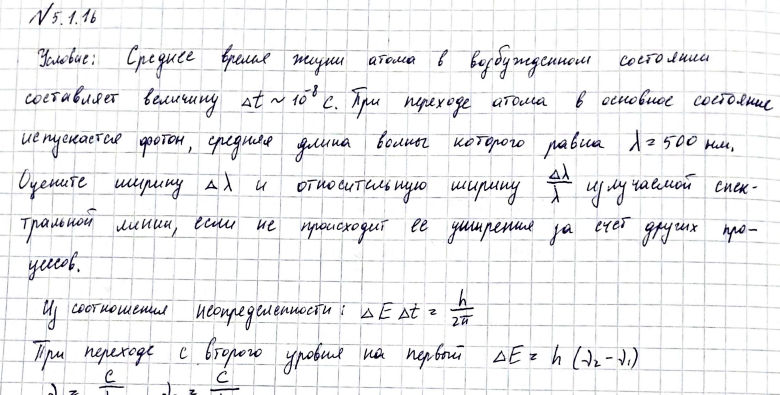 № 5.1.16
Условие: Среднее время жизни атома в возбужденном состоянии
составляет величину Δt ~ 10⁻⁸ с. При переходе атома в основное состояние
испускается фотон, средняя длина волны которого равна λ = 500 нм.
Оцените ширину Δλ и относительную ширину Δλ/λ излучаемой спек-
тральной линии, если не происходит ее уширения за счет других про-
цессов.
Из соотношения неопределенности: ΔE Δt = h/2π
При переходе с второго уровня на первый ΔE = h (ν₂ - ν₁)